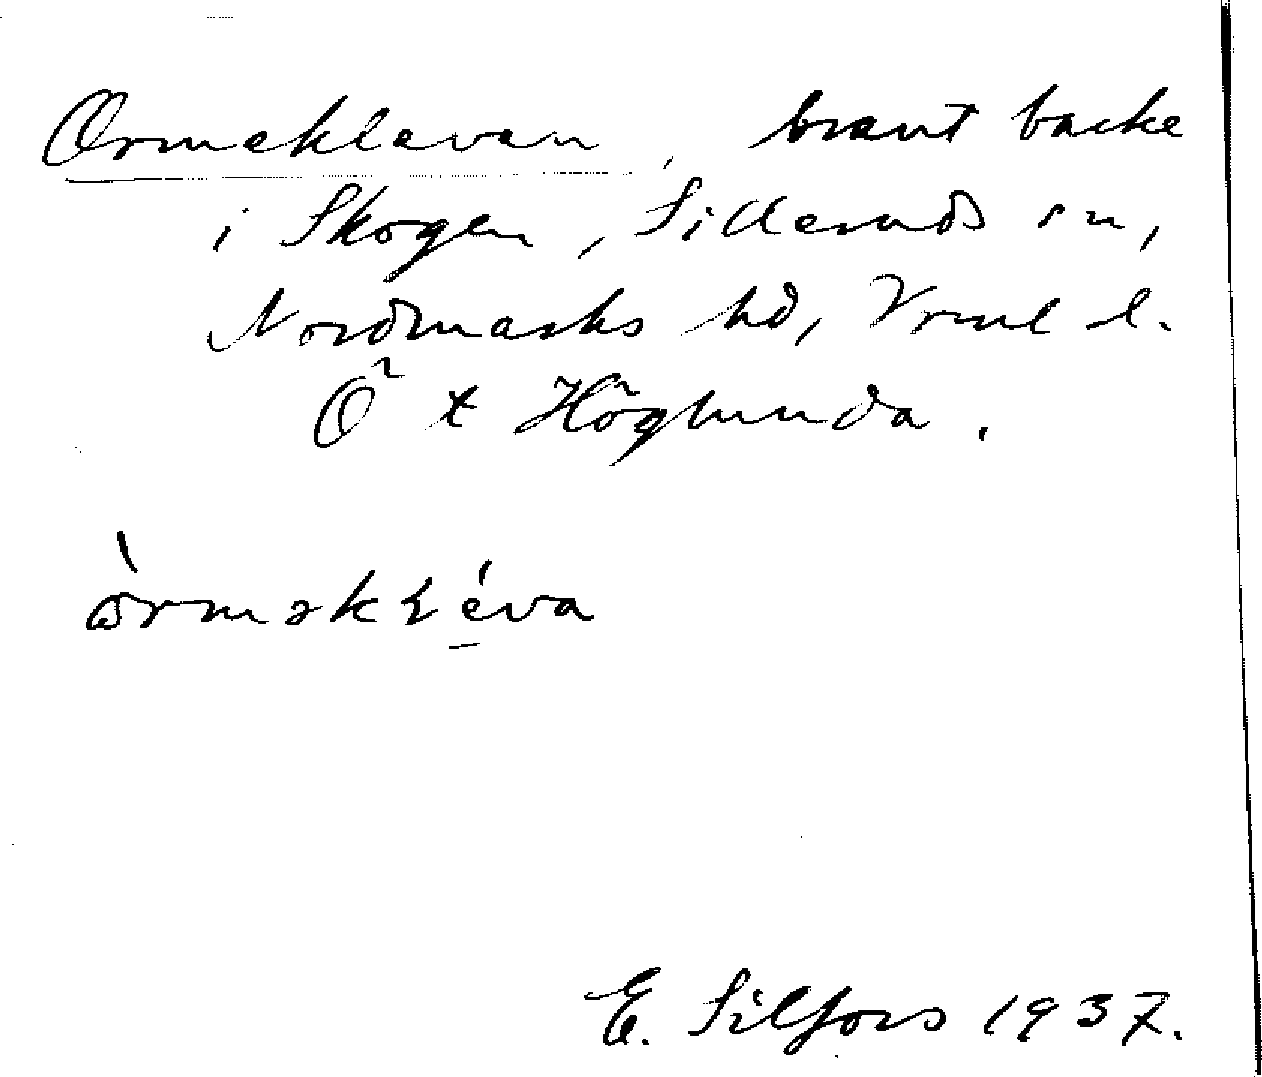 Ormeklevan, brant backe
i Skogen, Silleruds sn,
Nordmarks hd, Vrml l.
Ö t Höglunda.
E. Silfors 1937.